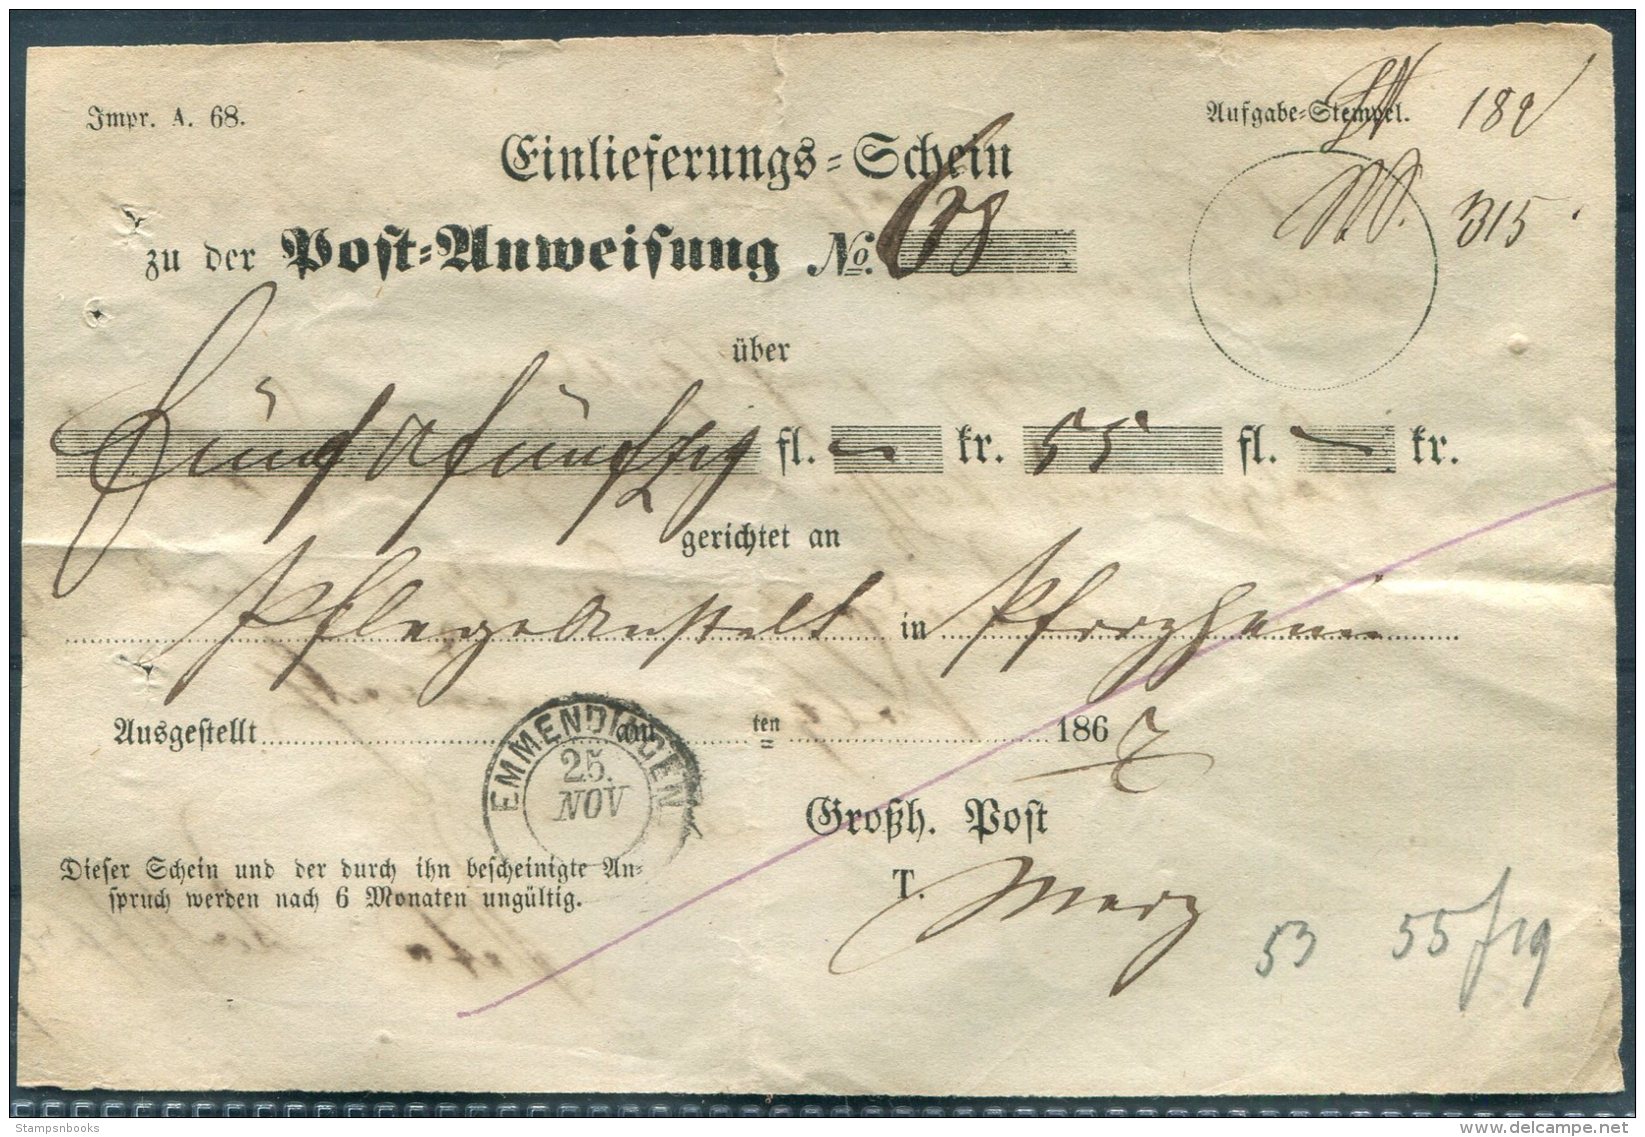 Impr. A. 68.
Aufgabe-Stempel.
182
Einlieferungs-Schein
315
zu der Post-Anweisung No. 68
über
Fünf u fünfzig fl. — kr. 55 fl. — kr.
gerichtet an
Pflegeanstalt in Pforzheim
Ausgestellt am ten 1867
EMMENDINGEN
25.
NOV
Großh. Post
T. Merz
Dieser Schein und der durch ihn bescheinigte An-
spruch werden nach 6 Monaten ungültig.
53 55 f 19
Stampsnbooks
www.delcampe.net